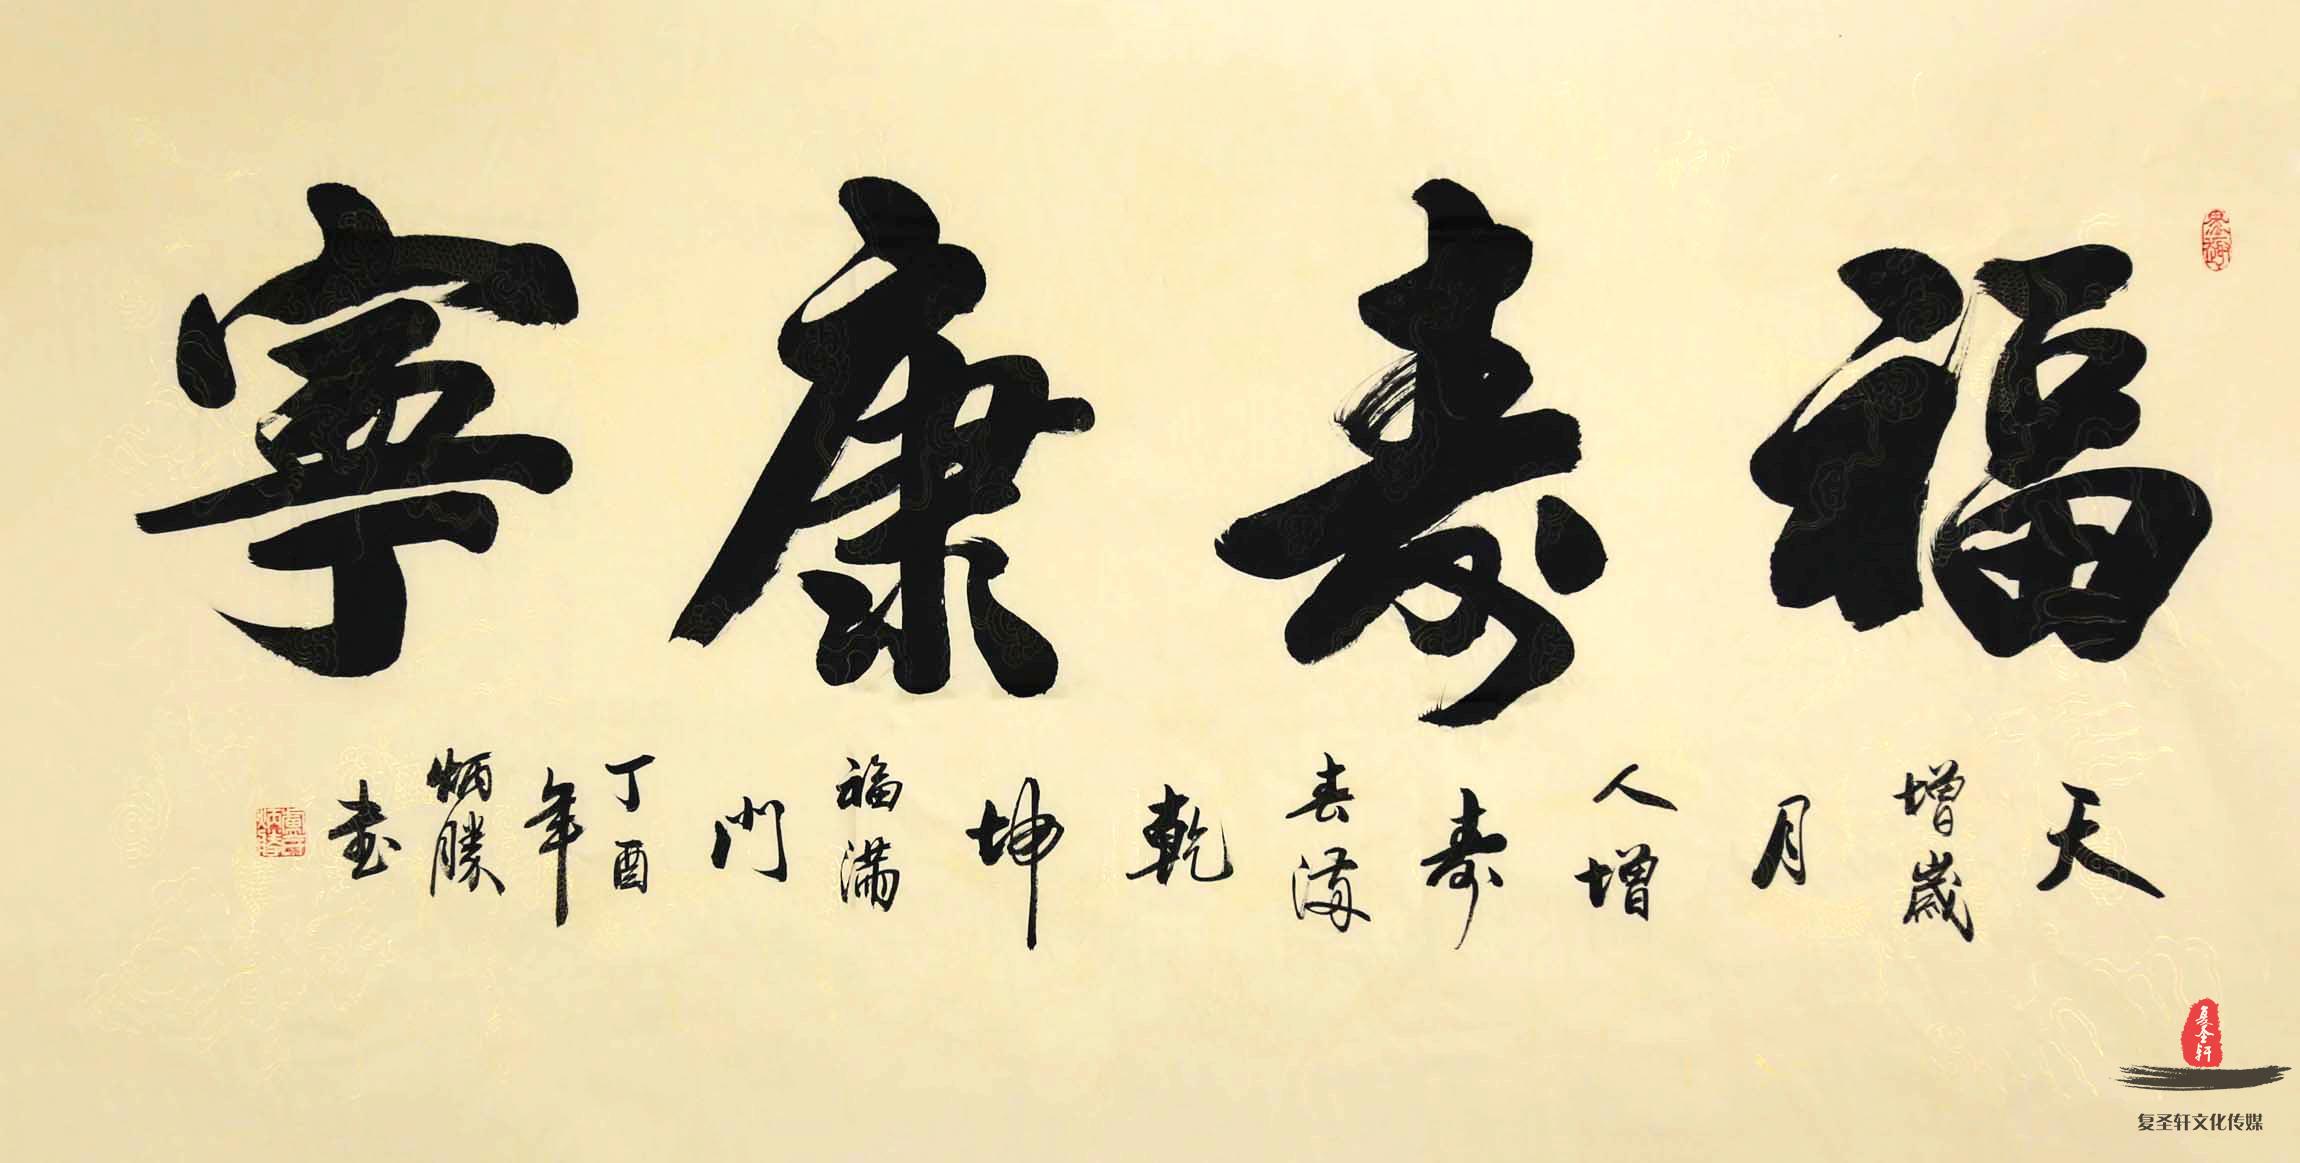 福壽康寧
天增歲月人增壽春滿乾坤福滿門
丁酉年炳勝書
复圣轩
复圣轩文化传媒